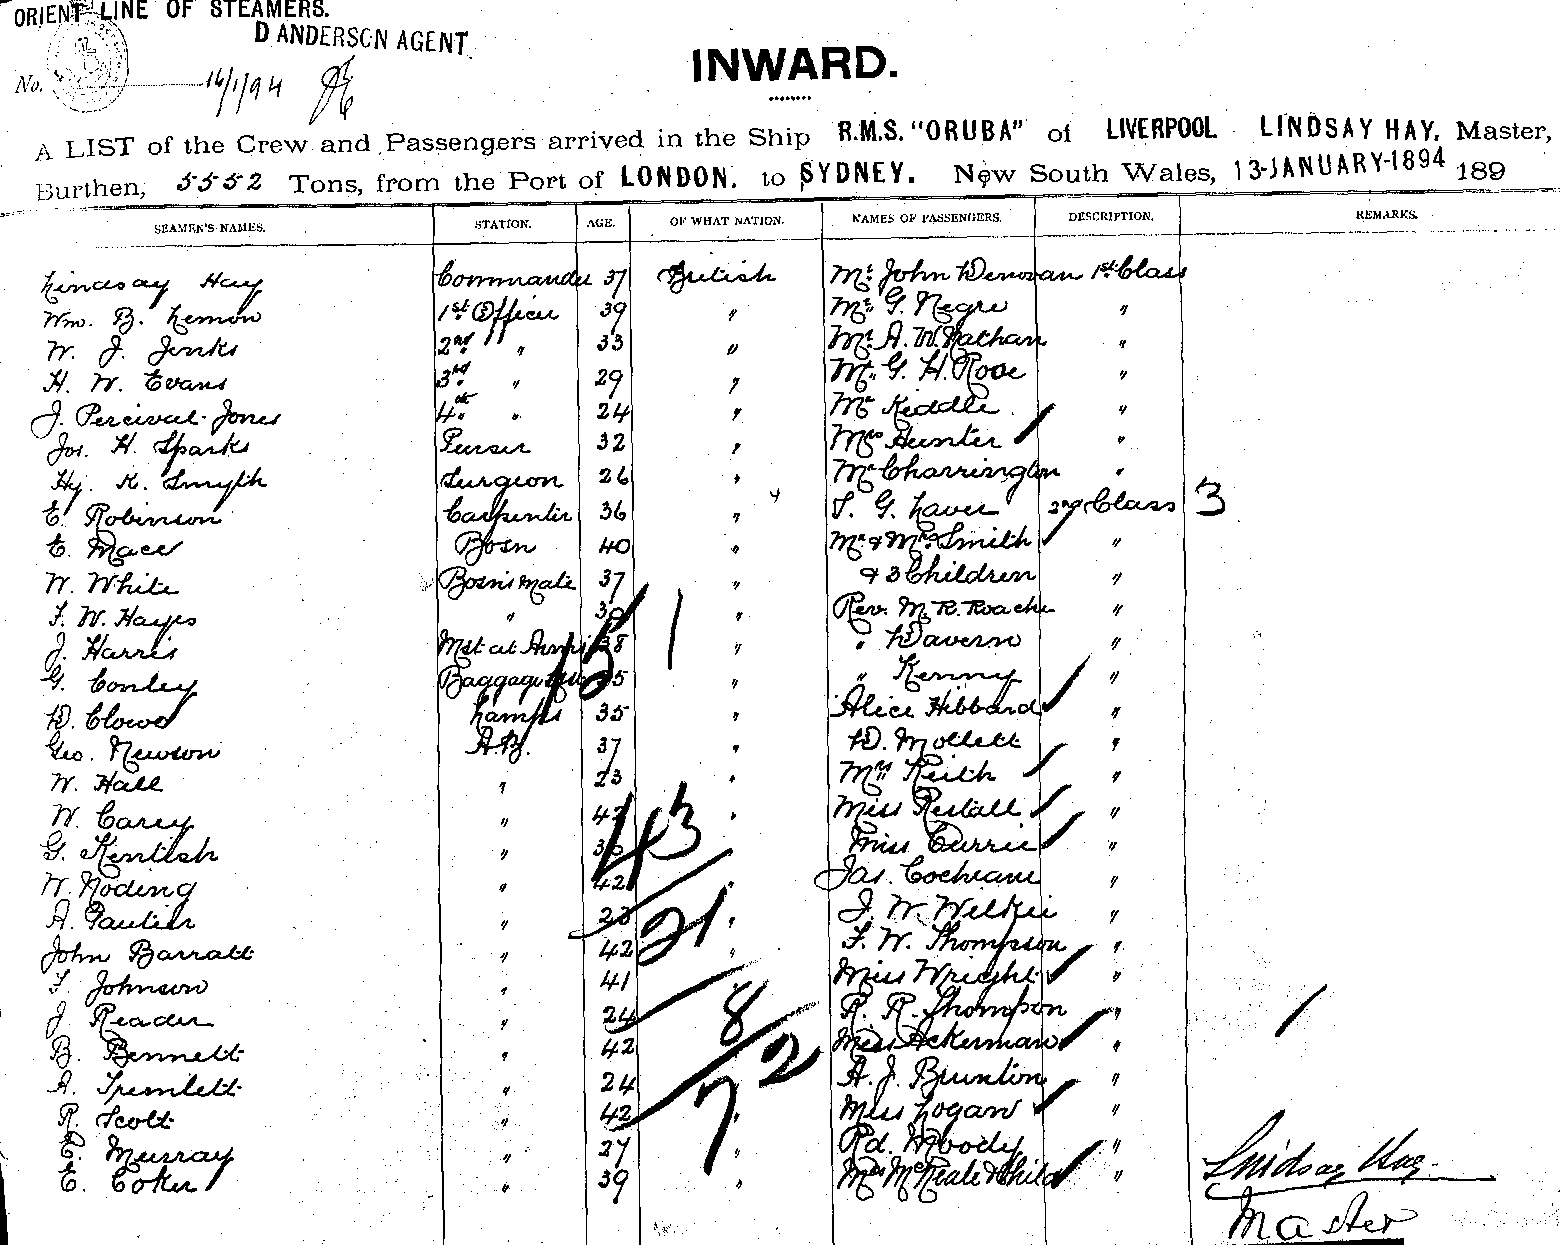 ORIENT LINE OF STEAMERS.
D ANDERSON AGENT
INWARD.
No. 16/1/94
A LIST of the Crew and Passengers arrived in the Ship R.M.S. "ORUBA" of LIVERPOOL LINDSAY HAY, Master,
Burthen, 5552 Tons, from the Port of LONDON. to SYDNEY. New South Wales, 13-JANUARY-1894 189
SEAMEN'S NAMES. STATION. AGE. OF WHAT NATION. NAMES OF PASSENGERS. DESCRIPTION. REMARKS.
Lindsay Hay Commander 37 British Mr. John Denovan 1st Class
Wm. B. Lemon 1st Officer 39 " Mr. G. Negre "
W. J. Jenks 2nd " 33 " Mr. A. W. Nathan "
H. W. Evans 3rd " 29 " Mr. G. H. Rose "
J. Percival-Jones 4th " 24 " Mr Kiddle "
Jos. H. Sparks Purser 32 " Mrs Hunter "
Hy. K. Smyth Surgeon 26 " Mr Charrington "
E. Robinson Carpenter 36 " S. G. Laver 2nd Class 3
E. Mace Bosn 40 " Mr & Mrs Smith "
W. White Bosn's Mate 37 " & 3 Children "
F. W. Hayes " " Rev. M. R. Roache "
J. Harris Mst at Arms 38 " " Davern "
G. Conley " " Kenny "
D. Clowd Lamps 35 " Alice Hibbard "
Geo. Newson A.B. 37 " D. Mollett "
W. Hall " 23 " Mrs Keith "
W. Carey " " Miss Restall "
G. Kentish " Miss Currie "
W. Noding " 42 " Jas. Cochrane "
A. Gautier " 23 " J. W. Wilkie "
John Barratt " 42 " F. W. Thompson "
F. Johnson " 41 Miss Wright "
J. Reader " 24 R. R. Thompson "
B. Bennett " 42 Miss Ackerman "
A. Tremlett " 24 A. J. Brunton "
R. Scott " 42 " Miss Logan "
E. Murray " 27 " Rd. Moody "
E. Coker " 39 " Mrs McNeale & Child "
15 1
43
21
8
2
7
Lindsay Hay
Master